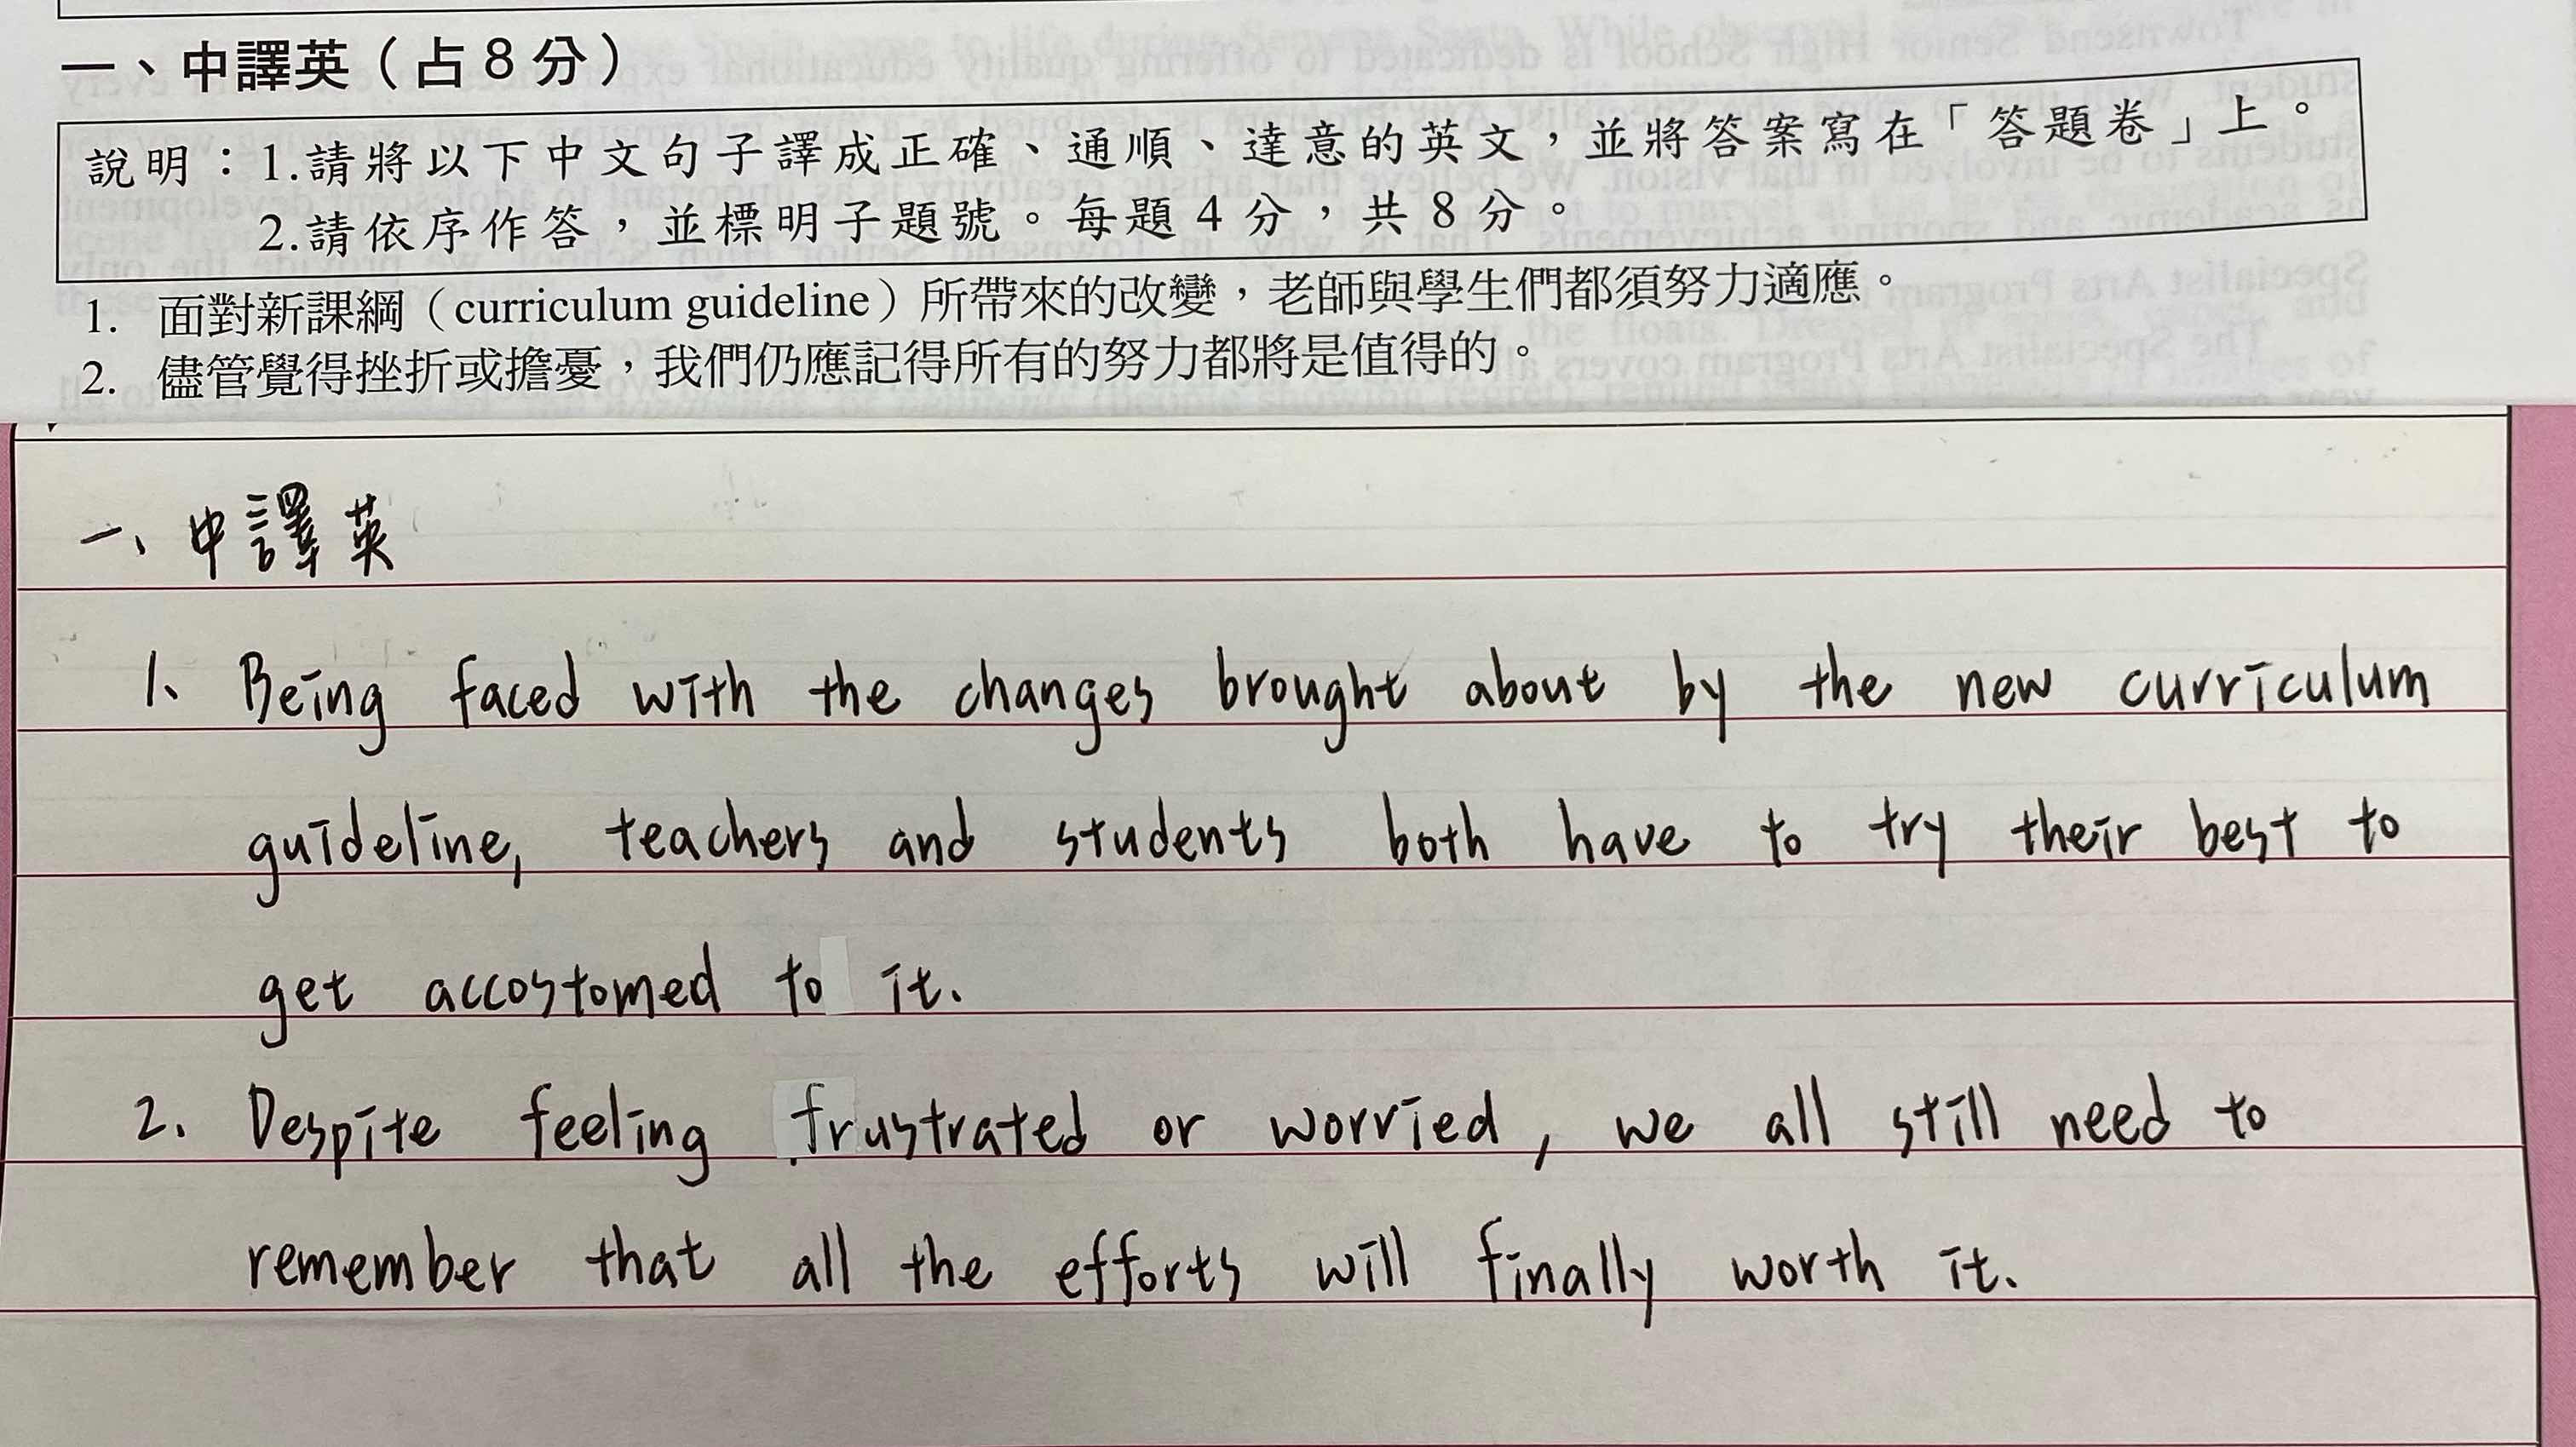 一、中譯英（占8分）
說明：1.請將以下中文句子譯成正確、通順、達意的英文，並將答案寫在「答題卷」上。
2.請依序作答，並標明子題號。每題4分，共8分。
1. 面對新課綱（curriculum guideline）所帶來的改變，老師與學生們都須努力適應。
2. 儘管覺得挫折或擔憂，我們仍應記得所有的努力都將是值得的。
一、中譯英
1、Being faced with the changes brought about by the new curriculum
guideline, teachers and students both have to try their best to
get accostomed to it.
2. Despite feeling frustrated or worried, we all still need to
remember that all the efforts will finally worth it.